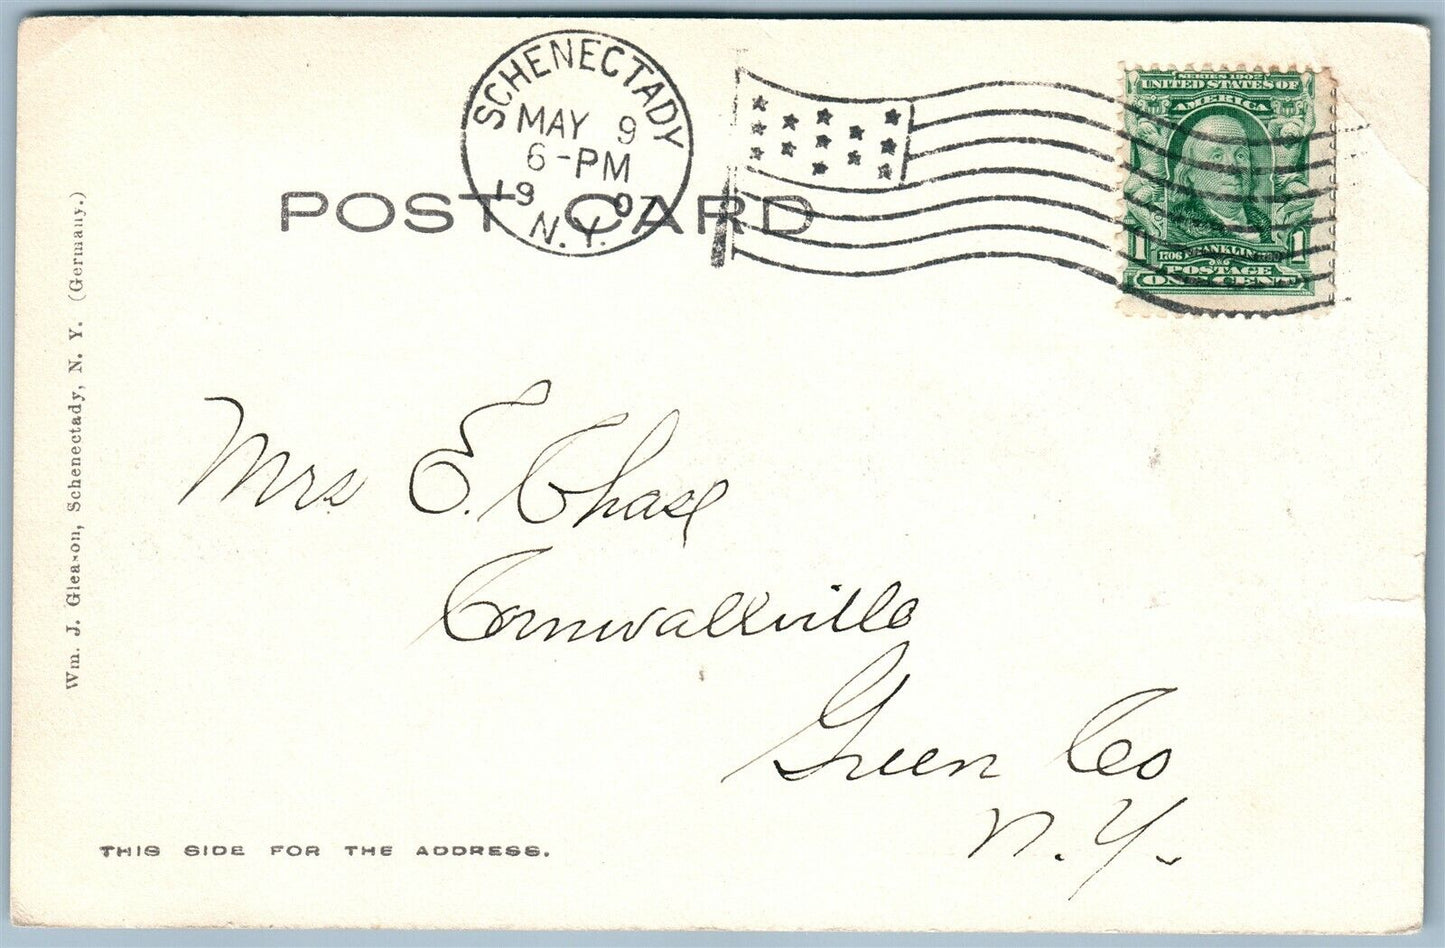 SCHENECTADY
MAY 9
6-PM
19 07
N.Y.
SERIES 1902
UNITED STATES OF
AMERICA
1 1706 FRANKLIN 1790 1
POSTAGE
ONE CENT
POST CARD
Wm. J. Gleason, Schenectady, N. Y. (Germany.)
Mrs E. Chase
Cornwallville
Green Co
N.Y.
THIS SIDE FOR THE ADDRESS.